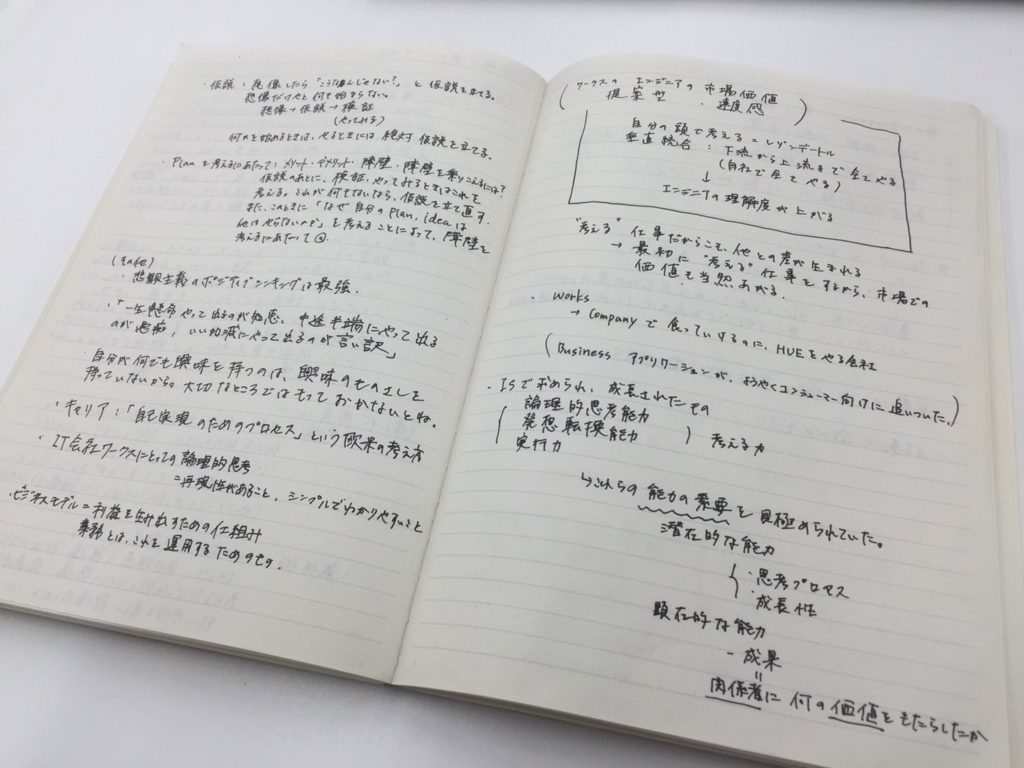 ・仮説：想像したら「こうなんじゃない?」と仮説を立てる。
想像だけやと何も始まらない。
想像→仮説→検証
(やってみる)
何かを始めるときは、やるときには絶対仮説を立てる。
・Planを考えるにあたって：メリット・デメリット・障壁・障壁を乗りこえるには?
仮説のあとに、検証、やってみるときもこれを
考える。これが何もないなら、仮説を立て直す。
また、このときに「なぜ自分のPlan, ideaは
他はやらないのか」を考えることによって、障壁を
考えるにあたって◎.
(その他)
・悲観主義のポジティブシンキングは最強.
・「一生懸命やって出るのが知恵、中途半端にやって出る
のが愚痴，いい加減にやって出るのが言い訳」
・自分が何でも興味を持つのは、興味のものさしを
持っていないから。大切なところではもっておかないとね。
・キャリア：「自己実現のためのプロセス」という欧米の考え方
・IT会社ワークスにとっての論理的思考
=再現性があること，シンプルでわかりやすいこと
・ビジネスモデル=利益を生み出すための仕組み
業務とは、これを運用するためのもの.
(ワークスの エンジニアの市場価値
提案型・速度感)
自分の頭で考える=レゾンデートル
垂直統合：下流から上流まで全てやる
(自社で全てやる)
↓
エンジニアの理解度が上がる
"考える"仕事だからこそ、他との差が生まれる
→最初に"考える"仕事をするから、市場での
価値も当然あがる.
・works
→Companyで食っていけるのに、HUEをやる会社
(Business アプリケーションが、ようやくコンシューマー向けに追いついた。)
・ISで求められ、成長されたもの
論理的思考能力
発想転換能力
実行力
考える力
↳これらの能力の素要を見極められていた。
潜在的な能力
・思考プロセス
・成長性
顕在的な能力
-成果
=
関係者に何の価値をもたらしたか